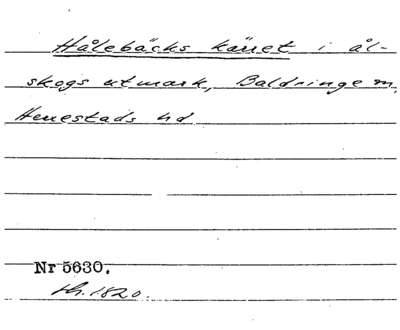 Hålebäcks kärret i ål-
skogs utmark, Baldringe m,
Herrestads hd
Nr 5630.
1820.